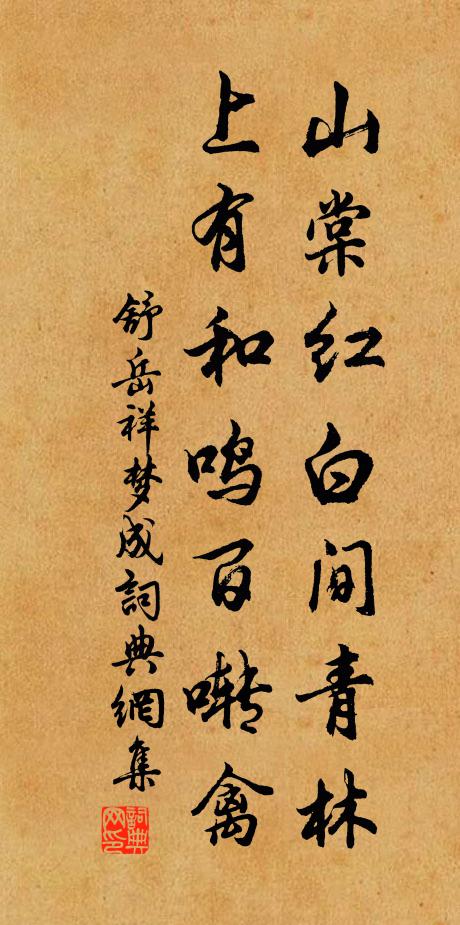 山棠红白间青林
上有和鸣百啭禽
舒岳祥梦成詞典網集
詞典网印